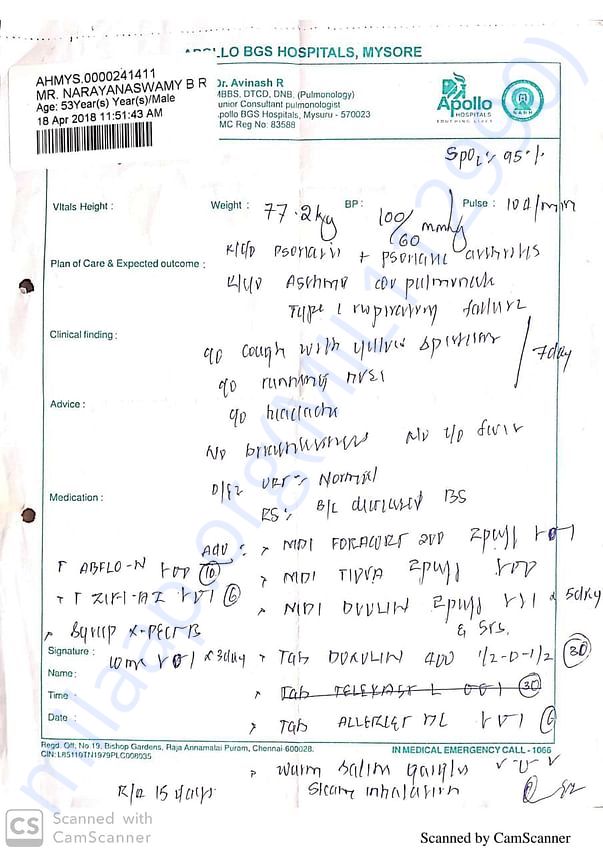 APOLLO BGS HOSPITALS, MYSORE
AHMYS.0000241411
MR. NARAYANASWAMY B R
Age: 53Year(s) Year(s)/Male
18 Apr 2018 11:51:43 AM
Dr. Avinash R
MBBS, DTCD, DNB, (Pulmonology)
Junior Consultant pulmonologist
Apollo BGS Hospitals, Mysuru - 570023
KMC Reg No: 83588
Apollo
HOSPITALS
TOUCHING LIVES
SpO2: 95 %
Vitals Height : Weight : 77.2kg BP: 100/60 mmHg Pulse :
K/C/O Psoriasis + psoriatic arthritis
Plan of Care & Expected outcome :
K/C/O Asthma cor pulmonale
Type 1 respiratory failure
Clinical finding :
c/o cough with yellow sputum
7day
c/o running nose
Advice :
c/o headache
No breathlessness No c/o fever
O/E: URT: Normal
Medication :
RS: B/L decreased BS
Adv: MDI FORACORT 200 2puff
T ABFLO-N 10
MDI TIOVA 2puff
T 6
MDI DUOLIN 2puff x 5day
& SOS.
Syrup X-PECT
Signature : 10ml x 3day
Tab 400 1/2-0-1/2 30
Name:
Tab TELEKAST L 0 0 1 30
Time :
Date :
Tab 6
Regd. Off: No 19, Bishop Gardens, Raja Annamalai Puram, Chennai 600028.
CIN: L85110TN1979PLC008035
IN MEDICAL EMERGENCY CALL - 1066
warm saline gargles
R/a 15 days Steam inhalation
milaap.org
CS Scanned with
CamScanner
Scanned by CamScanner